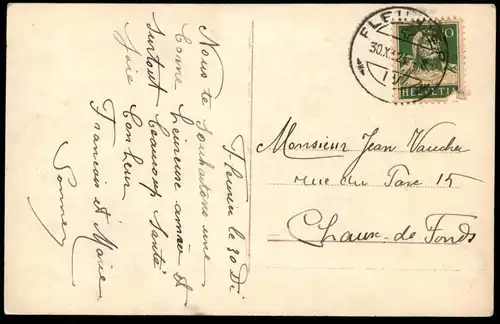 Fleurier le 30 Di
Nous te souhaitons une
bonne heureuse année et
surtout beaucoup santé
joie bonheur
Francois et Marie
FLEU
30.X
10
HELVETIA
Monsieur Jean Vaucher
rue du Parc 15
Chaux-de-Fonds